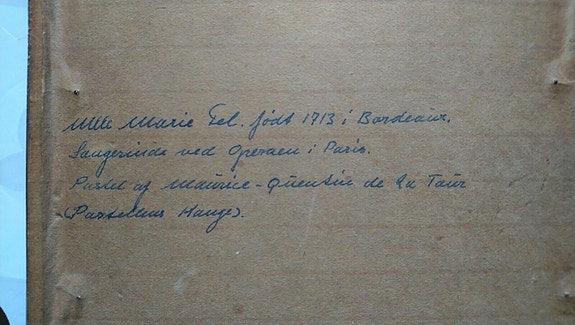 Mlle Marie Fel. født 1713 i Bordeaux.
Sangerinde ved Operaen i Paris.
Pastel af Maurice-Quentin de la Tour
(Pastellens Konge).